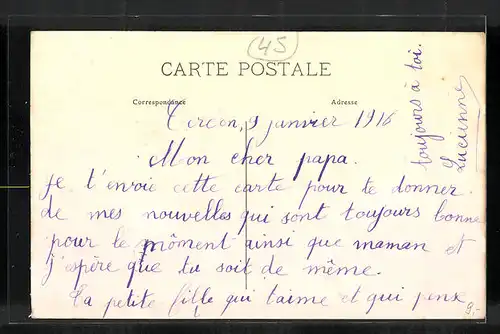 45
CARTE POSTALE
Correspondance
Adresse
9 janvier 1916
Mon cher papa.
je t'envoie cette carte pour te donner
de mes nouvelles qui sont toujours bonne
pour le môment ainsi que maman et
j'espère que tu soit de même.
Ta petite fille qui t'aime et qui pense
toujours à toi.
Lucienne